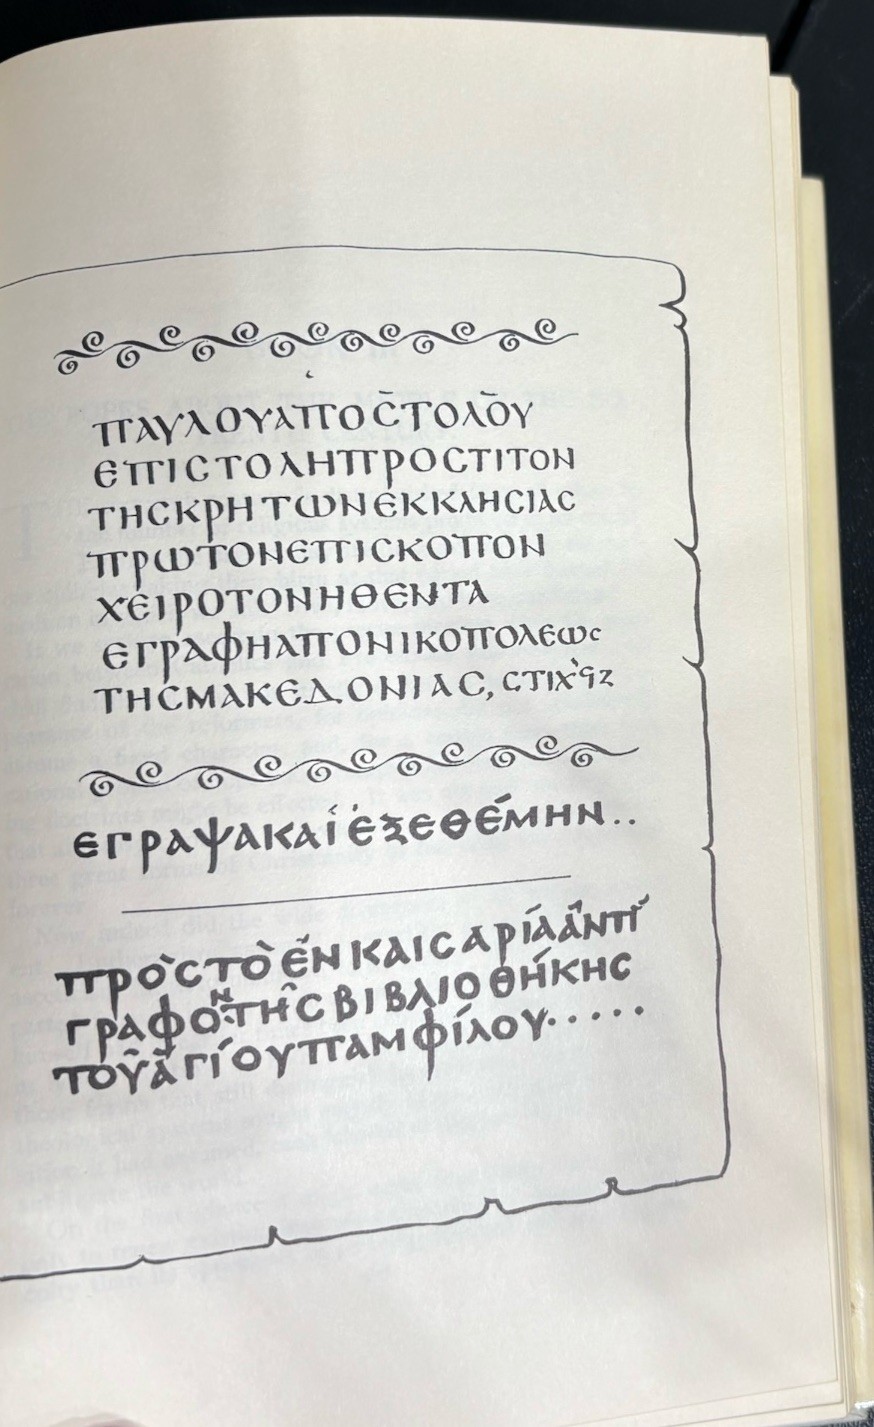 ΠΑΥΛΟΥΑΠΟϹΤΟΛΟΥ
ΕΠΙϹΤΟΛΗΠΡΟϹΤΙΤΟΝ
ΤΗϹΚΡΗΤΩΝΕΚΚΛΗϹΙΑϹ
ΠΡΩΤΟΝΕΠΙϹΚΟΠΟΝ
ΧΕΙΡΟΤΟΝΗΘΕΝΤΑ
ΕΓΡΑΦΗΑΠΟΝΙΚΟΠΟΛΕΩϹ
ΤΗϹΜΑΚΕΔΟΝΙΑϹ, ϹΤΙΧ̀ϟΖ
ΕΓΡΑΨΑΚΑΊἘΞΕΘΈΜΗΝ..
ΠΡῸϹΤῸἜΝΚΑΙϹΑΡΊΑἌΝΤΊ
ΓΡΑΦΟΝ:ΤΗ͂ϹΒΙΒΛΙΟΘΉΚΗϹ
ΤΟΥ͂ἉΓΊΟΥΠΑΜΦΊΛΟΥ.....